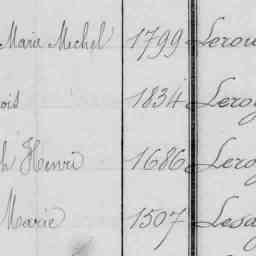 Marie Michel 1799 Lerou
ois 1834 Leroy
h Henri 1686 Lero
Marie 1507 Lesa